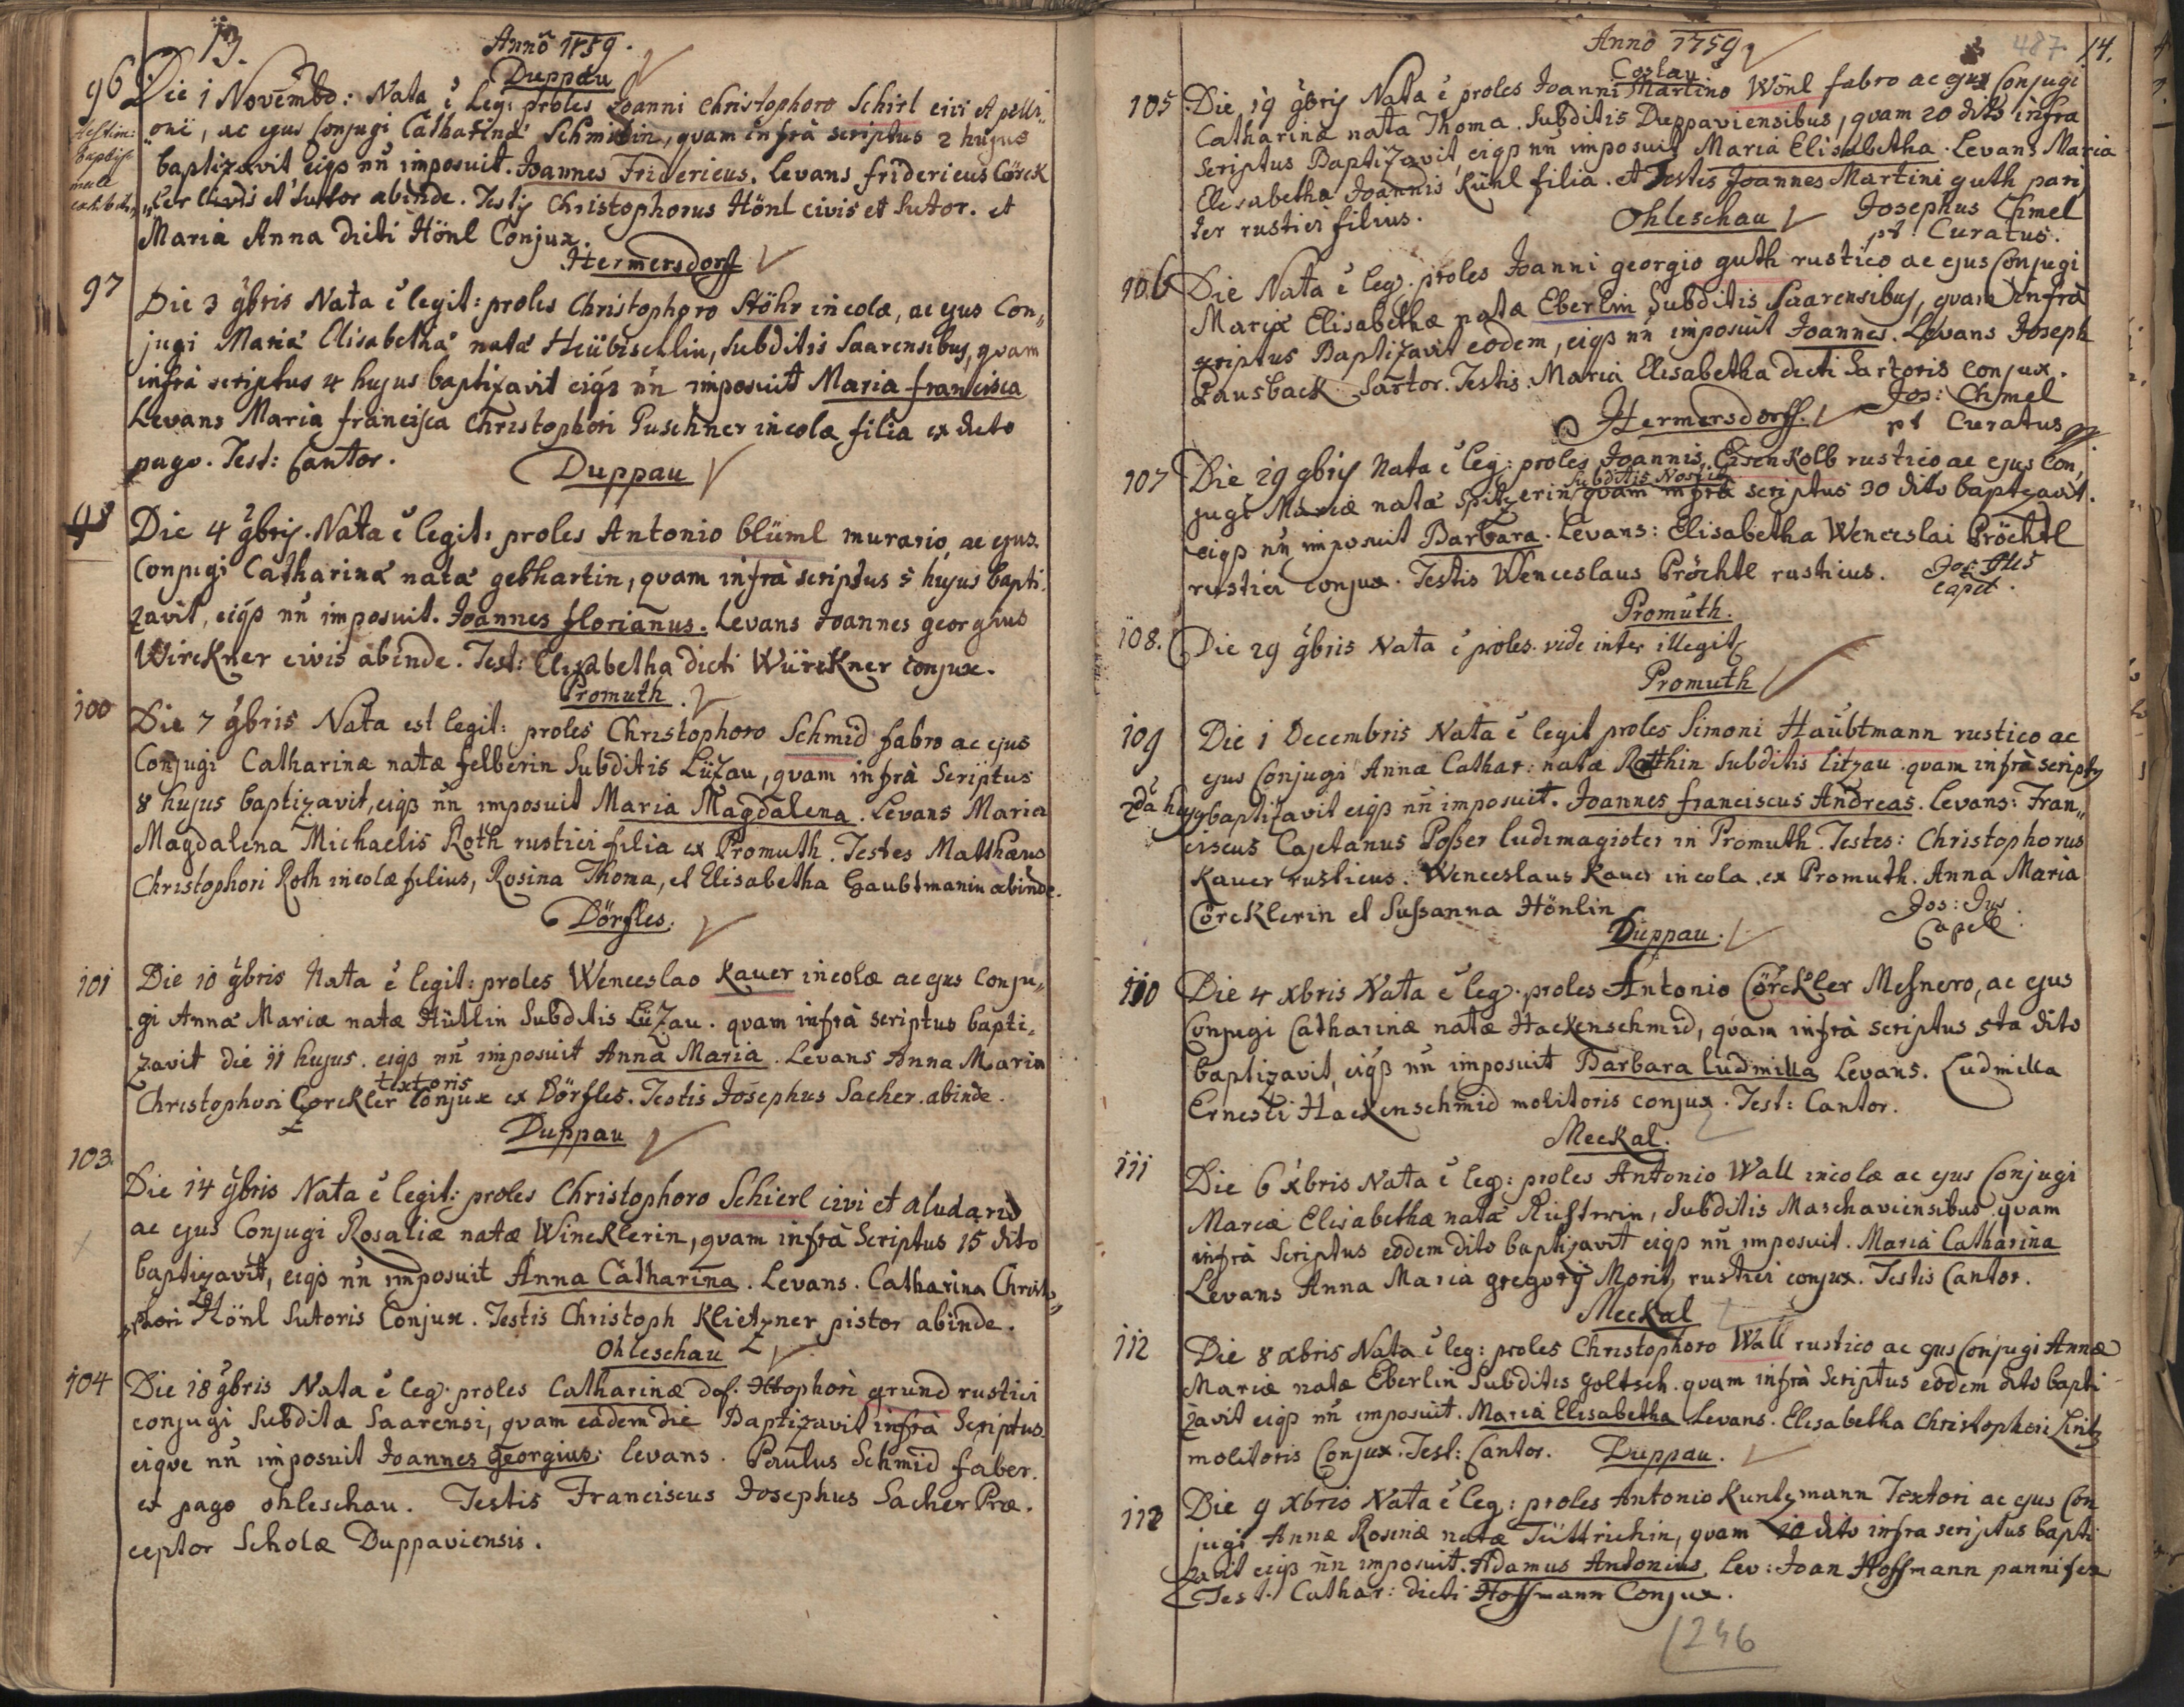 13.
Anno 1759.
Duppau
96 Die 1 Novemb: Nata ē Leg: proles Joanni Christophoro Schirl civi et pelli„
„oni, ac ejus Conjugi Catharinâ Schmidin, quam infrà scriptus 2 hujus
baptizavit eiqз nñ imposuit. Joannes Fridericus. Levans fridericus Cörck
„ler Civis et Sutor abinde. Testis Christophorus Hönl civis et Sutor. et
Maria Anna dicti Hönl Conjux.
Hermersdorff
97 Die 3 9bris Nata ē legit: proles Christophoro Stöhr incolæ, ac ejus Con„
jugi Mariâ Elisabethâ natâ Heübischlin, Subditis Saarensibus, quam
infrà scriptus 4 hujus baptizavit eiqз nñ imposuit Maria francisca
Levans Maria francisca Christophori Puschner incolæ filia ex dicto
pago. Test: Cantor.
Duppau
98 Die 4 9bris. Nata ē legit: proles Antonio blüml murario, ac ejus
Conjugi Catharinâ natâ gebhartin, quam infrà scriptus 5 hujus bapti.
zavit, eiqз nñ imposuit. Joannes florianus. Levans Joannes georgius
Wirckner civis abinde. Test: Elisabetha dicti Würckner conjux.
Promuth.
100 Die 7 9bris Nata est legit: proles Christophoro Schmid fabro ac ejus
Conjugi Catharinæ natæ felberin Subditis Lüzau, quam infrà Scriptus
8 hujus baptizavit, eiqз nñ imposuit Maria Magdalena. Levans Maria
Magdalena Michaelis Roth rustici filia ex Promuth. Testes Matthæus
Christophori Roth incolæ filius, Rosina Thoma, et Elisabetha Haubtmanin abinde.
Dörfles.
101 Die 10 9bris Nata ē legit: proles Wenceslao Kauer incolæ ac ejus Conju„
gi Annâ Mariæ natæ Hüttin Subditis LüZau. quam infrà scriptus bapti„
zavit die 11 hujus. eiqз nñ imposuit Anna Maria. Levans Anna Maria
textoris
Christophori Corckler Conjux ex Dörfles. Testis Josephus Sacher. abinde.
Duppau
103. Die 14 9bris Nata ē legit: proles Christophoro Schierl civi et aludario
ac ejus Conjugi Rosaliæ natæ Wincklerin, quam infrà Scriptus 15 dito
baptizavit, eiqз nñ imposuit Anna Catharina. Levans. Catharina Christo„
„phori Hönl Sutoris Conjux. Testis Christoph Klietzner pistor abinde.
Ohleschau
104 Die 18 9bris Nata ē Leg. proles Catharinæ grund rustici
conjugi Subdita Saarensi, quam eâdem die Baptizavit infrà Scriptus
eique nñ imposuit Joannes Georgius: levans. Paulus Schmid faber.
ex pago ohleschau. Testis Franciscus Josephus Sacher Præ.
ceptor Scholæ Duppaviensis.
Anno 1759
487. 14.
Coslau
105 Die 19 9bris Nata ē proles Joanni Martino Wönl fabro ac ejus Conjugi
Catharina nata Thoma. Subditis Duppaviensibus, quam 20 dito infra
Scriptus Baptizavit, eiqз nñ imposuit Maria Elisabetha. Levans Maria
Elisabetha Joannis Kühl filia. et Testis Joannes Martini guth pari
ter rustici filius.
Josephus Chmel
pt. Curatus.
Ohleschau
106 Die Nata ē leg. proles Joanni georgio guth rustico ac ejus Conjugi
Mariæ Elisabethæ natæ Eberlin Subditis Saarensibus, quam infrà
scriptus Baptizavit eodem, eiqз nñ imposuit Joannes. Levans Joseph
Pausback Sartor. Testis Maria Elisabetha dicti Sartoris conjux.
Jos: Chmel
pt Curatus
Hermersdorff.
107 Die 29 9bris Nata ē leg: proles Joannis Eisenkolb rustico ac ejus Con„
Subditis
jugi Mariæ natâ Spitzerin quam infrà scriptus 30 dito baptzavit.
eiqз nñ imposuit Barbara. Levans: Elisabetha Wenceslai Pröchtl
rustici conjux. Testis Wenceslaus Pröchtl rusticus.
Promuth.
108. Die 29 9bris Nata ē proles. vide inter illegit
Promuth
109 Die 1 Decembris Nata ē legit proles Simoni Haubtmann rustico ac
ejus Conjugi Annæ Cathar: natæ Rothin Subditis litzau quam infrà scriptus
2da hujus baptizavit eiqз nñ imposuit. Joannes franciscus Andreas. Levans: Fran„
ciscus Cajetanus Posser ludimagister in Promuth. Testes: Christophorus
Kauer rusticus. Wenceslaus Kauer incola ex Promuth. Anna Maria
Cörcklerin et Sussanna Hönlin
Jos: Jus
Capell.
Duppau.
110 Die 4 xbris Nata ē leg. proles Antonio Cörckler Mesnero, ac ejus
Conjugi Catharinæ natæ Hackenschmid, quam infrà scriptus 5ta dito
baptizavit, eiqз nñ imposuit Barbara ludmilla Levans. Ludmilla
Ernesti Hackenschmid molitoris conjux. Test: Cantor.
Meckal.
111 Die 6 xbris Nata ē leg: proles Antonio Wall incolæ ac ejus Conjugi
Mariâ Elisabethæ natâ, Subditis Maschaviensibus quam
infrà Scriptus eodem dito baptizavit eiqз nñ imposuit. Maria Catharina
Levans Anna Maria gregorÿ Moritz rustici conjux. Testis Cantor.
Meckal
112 Die 8 xbris Nata ē leg: proles Christophoro Wall rustico ac ejus Conjugi Annæ
Mariæ natæ Eberlin Subditis goltsch. quam infrà Scriptus eodem dito bapti
zavit eiqз nñ imposuit. Maria Elisabetha Levans. Elisabetha Christophori Lintz
molitoris Conjux. Test: Cantor.
Duppau.
113 Die 9 Xbris Nata ē Leg: proles Antonio Kuntzmann Textori ac ejus Con
jugi Annæ Rosinæ natæ Tüttrichin, quam 10 dito infra scriptus bapti
zavit eiqз nñ imposuit. Adamus Antonius. Lev: Joan Hoffmann pannifex
Test. Cathar: dicti Hoffmann Conjux.
246